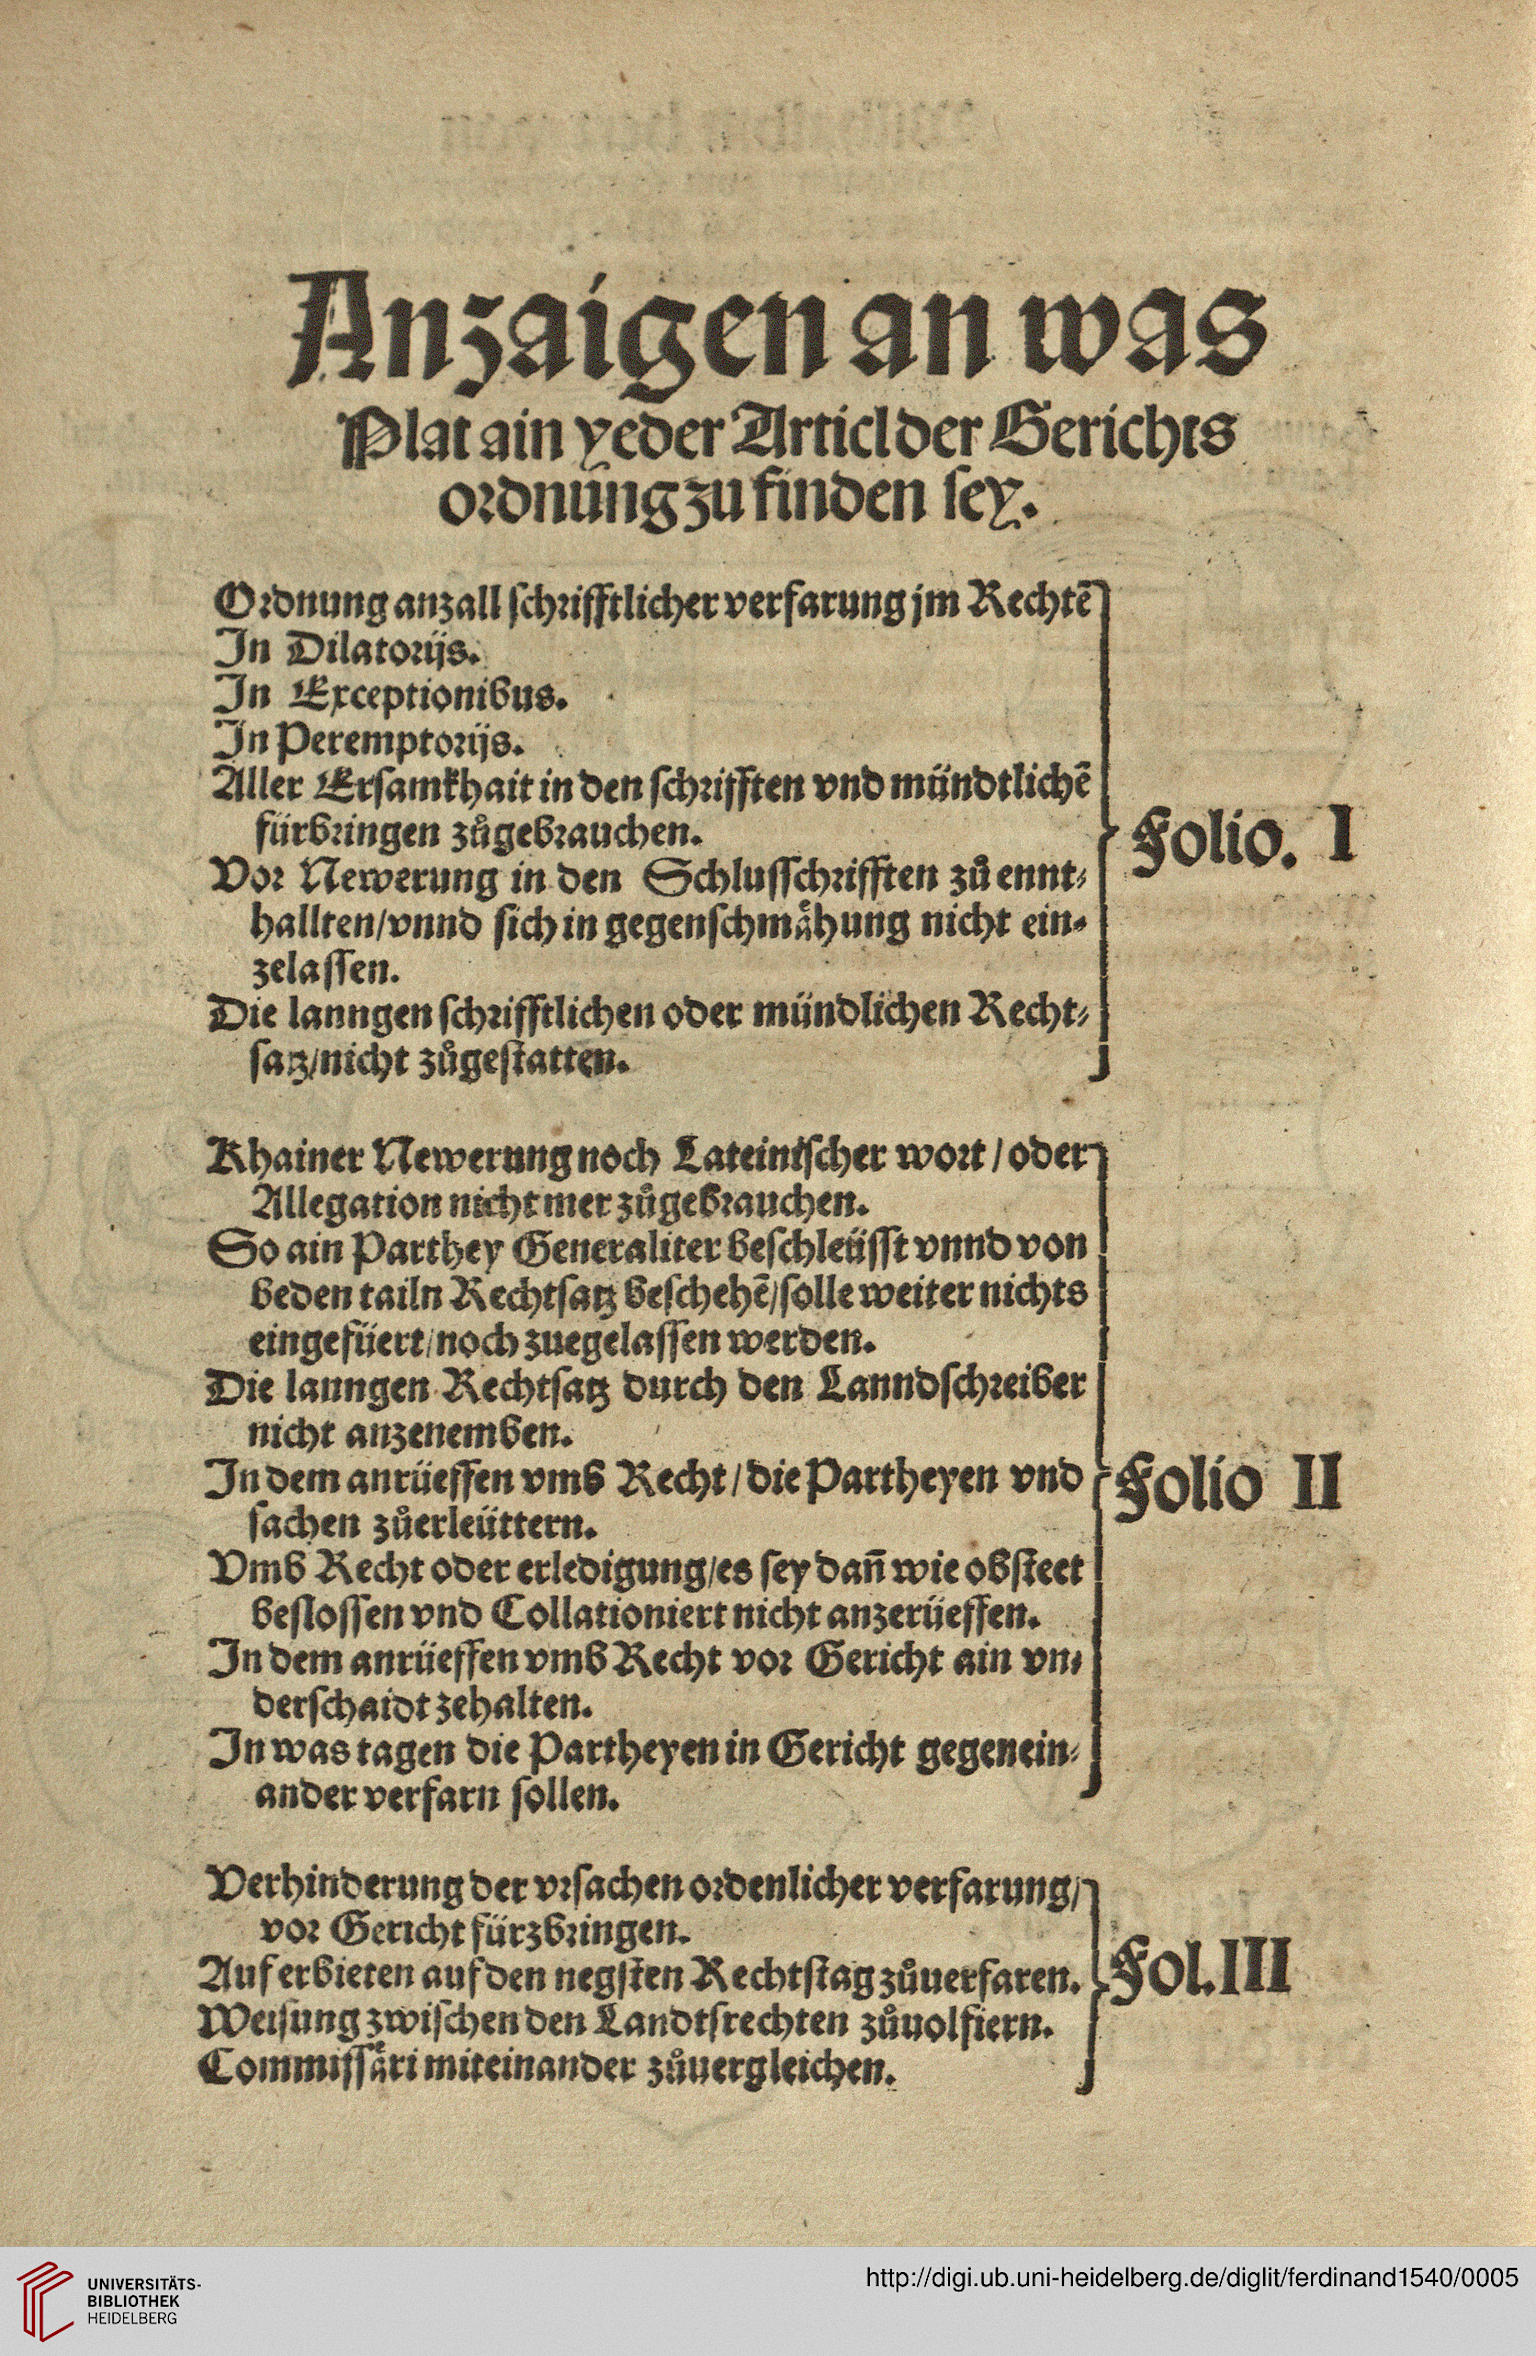 Anzaigen an was
Plat ain yeder Articl der Gerichts
ordnung zu finden sey.
Ordnung anzall schrifftlicher verfarung jm Rechtē
In Dilatorijs.
In Exceptionibus.
In Peremptorijs.
Aller Ersamkhait in den schrifften vnd mündtlichē
fürbringen zůgebrauchen.
Vor Newerung in den Schlusschrifften zů ennt-
hallten/vnnd sich in gegenschmåhung nicht ein-
zelassen.
Die lanngen schrifftlichen oder mündlichen Recht-
satz/nicht zůgestatten.
Folio. I
Khainer Newerung noch Lateinischer wort / oder
Allegation nicht mer zůgebrauchen.
So ain Parthey Generaliter beschleüsst vnnd von
beden tailn Rechtsatz beschehē/solle weiter nichts
eingefüert/noch zuegelassen werden.
Die lanngen Rechtsatz durch den Lanndschreiber
nicht anzenemben.
In dem anrüeffen vmb Recht / die Partheyen vnd
sachen zůerleüttern.
Vmb Recht oder erledigung/es sey dañ wie obsteet
beslossen vnd Collationiert nicht anzerüeffen.
In dem anrüeffen vmb Recht vor Gericht ain vn-
derschaidt zehalten.
In was tagen die Partheyen in Gericht gegenein-
ander verfarn sollen.
Folio II
Verhinderung der vrsachen ordenlicher verfarung/
vor Gericht fürzbringen.
Auf erbieten auf den negsten Rechtstag zůuerfaren.
Weisung zwischen den Landtsrechten zůuolfiern.
Commissåri miteinander zůuergleichen.
Fol. III
UNIVERSITÄTS-
BIBLIOTHEK
HEIDELBERG
http://digi.ub.uni-heidelberg.de/diglit/ferdinand1540/0005